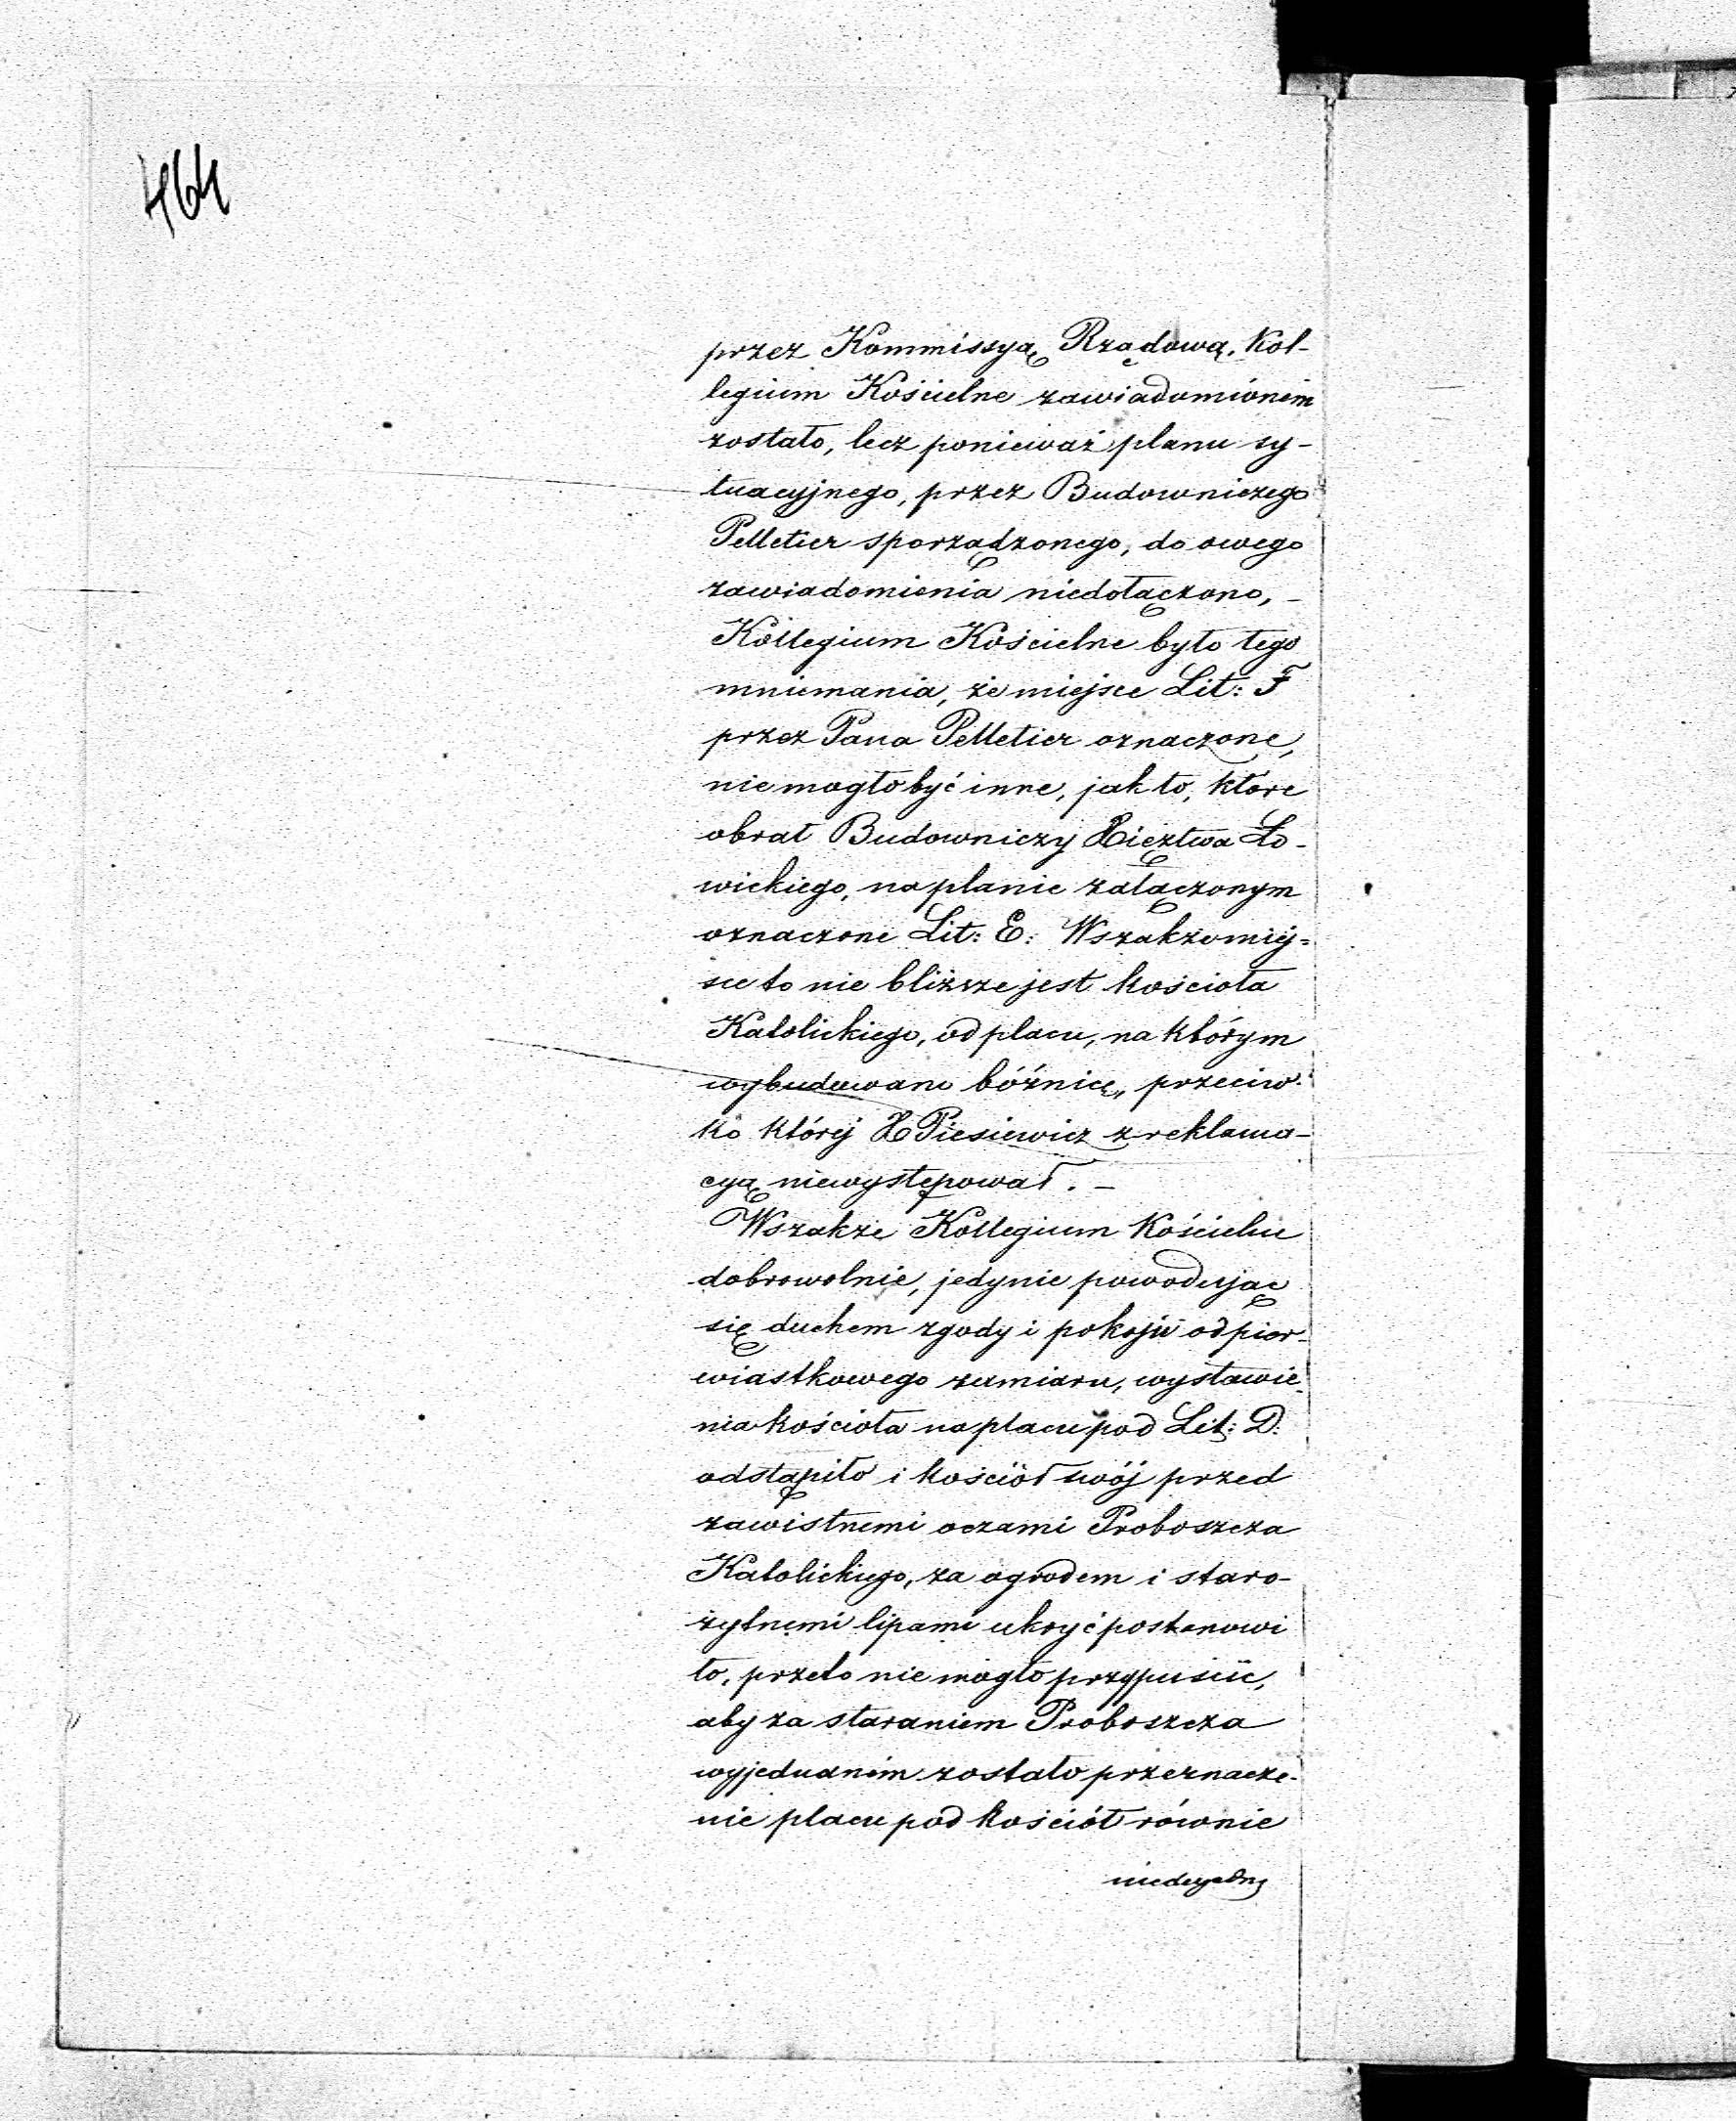 464
przez Kommissyą Rządową, Kol-
legium Kościelne zawiadomioném
zostało, lecz ponieważ planu sy-
tuacyjnego, przez Budowniczego
Pelletier sporządzonego, do owego
zawiadomienia niedołączono, -
Kollegium Kościelne było tego
mniemania, że miejsce Lit: F
przez Pana Pelletier oznaczone,
nie mogło być inne, jak to, które
obrał Budowniczy Xięztwa Ło-
wickiego, na planie załączonym
oznaczone Lit: E: Wszakże miéj-
sce to nie bliższe jest kościoła
Katolickiego, od placu, na którym
wybudowano bóżnicę, przeciw-
ko któréj X Piesiewicz z reklama-
cyą niewystępował. -
Wszakże Kollegium Kościelne
dobrowolnie, jedynie powodując
się duchem zgody i pokoju od pier-
wiastkowego zamiaru, wystawie-
nia kościoła na placu pod Lit: D:
odstąpiło i kościół swój przed
zawistnemi oczami Proboszcza
Katolickiego, za ogrodem i staro-
żytnemi lipami ukryć postanowi
ło, przeto nie mogło przypuścić,
aby za staraniem Proboszcza
wyjednaném zostało przeznacze-
nie placu pod kościół równie